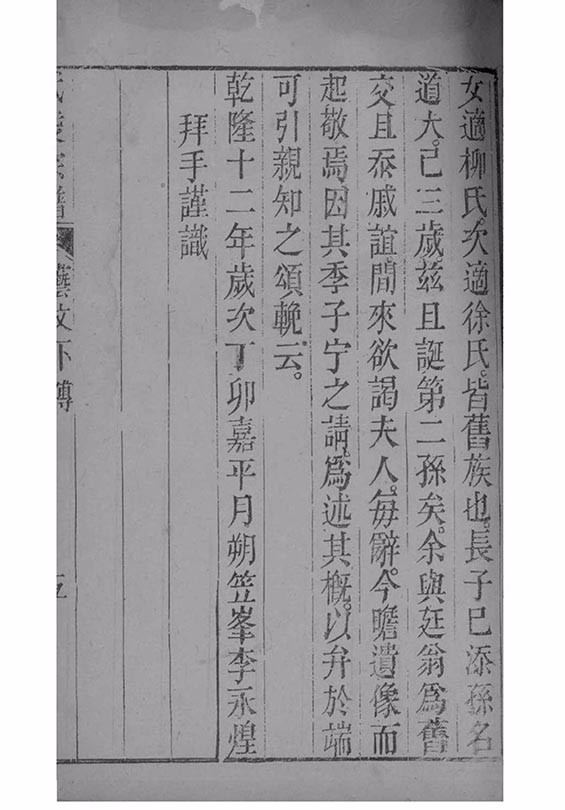 女適柳氏。次適徐氏。皆舊族也。長子已添孫名
道大。已三歲。茲且誕第二孫矣。余與廷翁爲舊
交且忝戚誼。間來欲謁夫人。每辭。今瞻遺像而
起敬焉。因其季子宁之請。爲述其槪。以弁於端
可引親知之頌軗云。
乾隆十二年歲次丁卯嘉平月朔笠峯李永煌
拜手謹識
藝文下傳